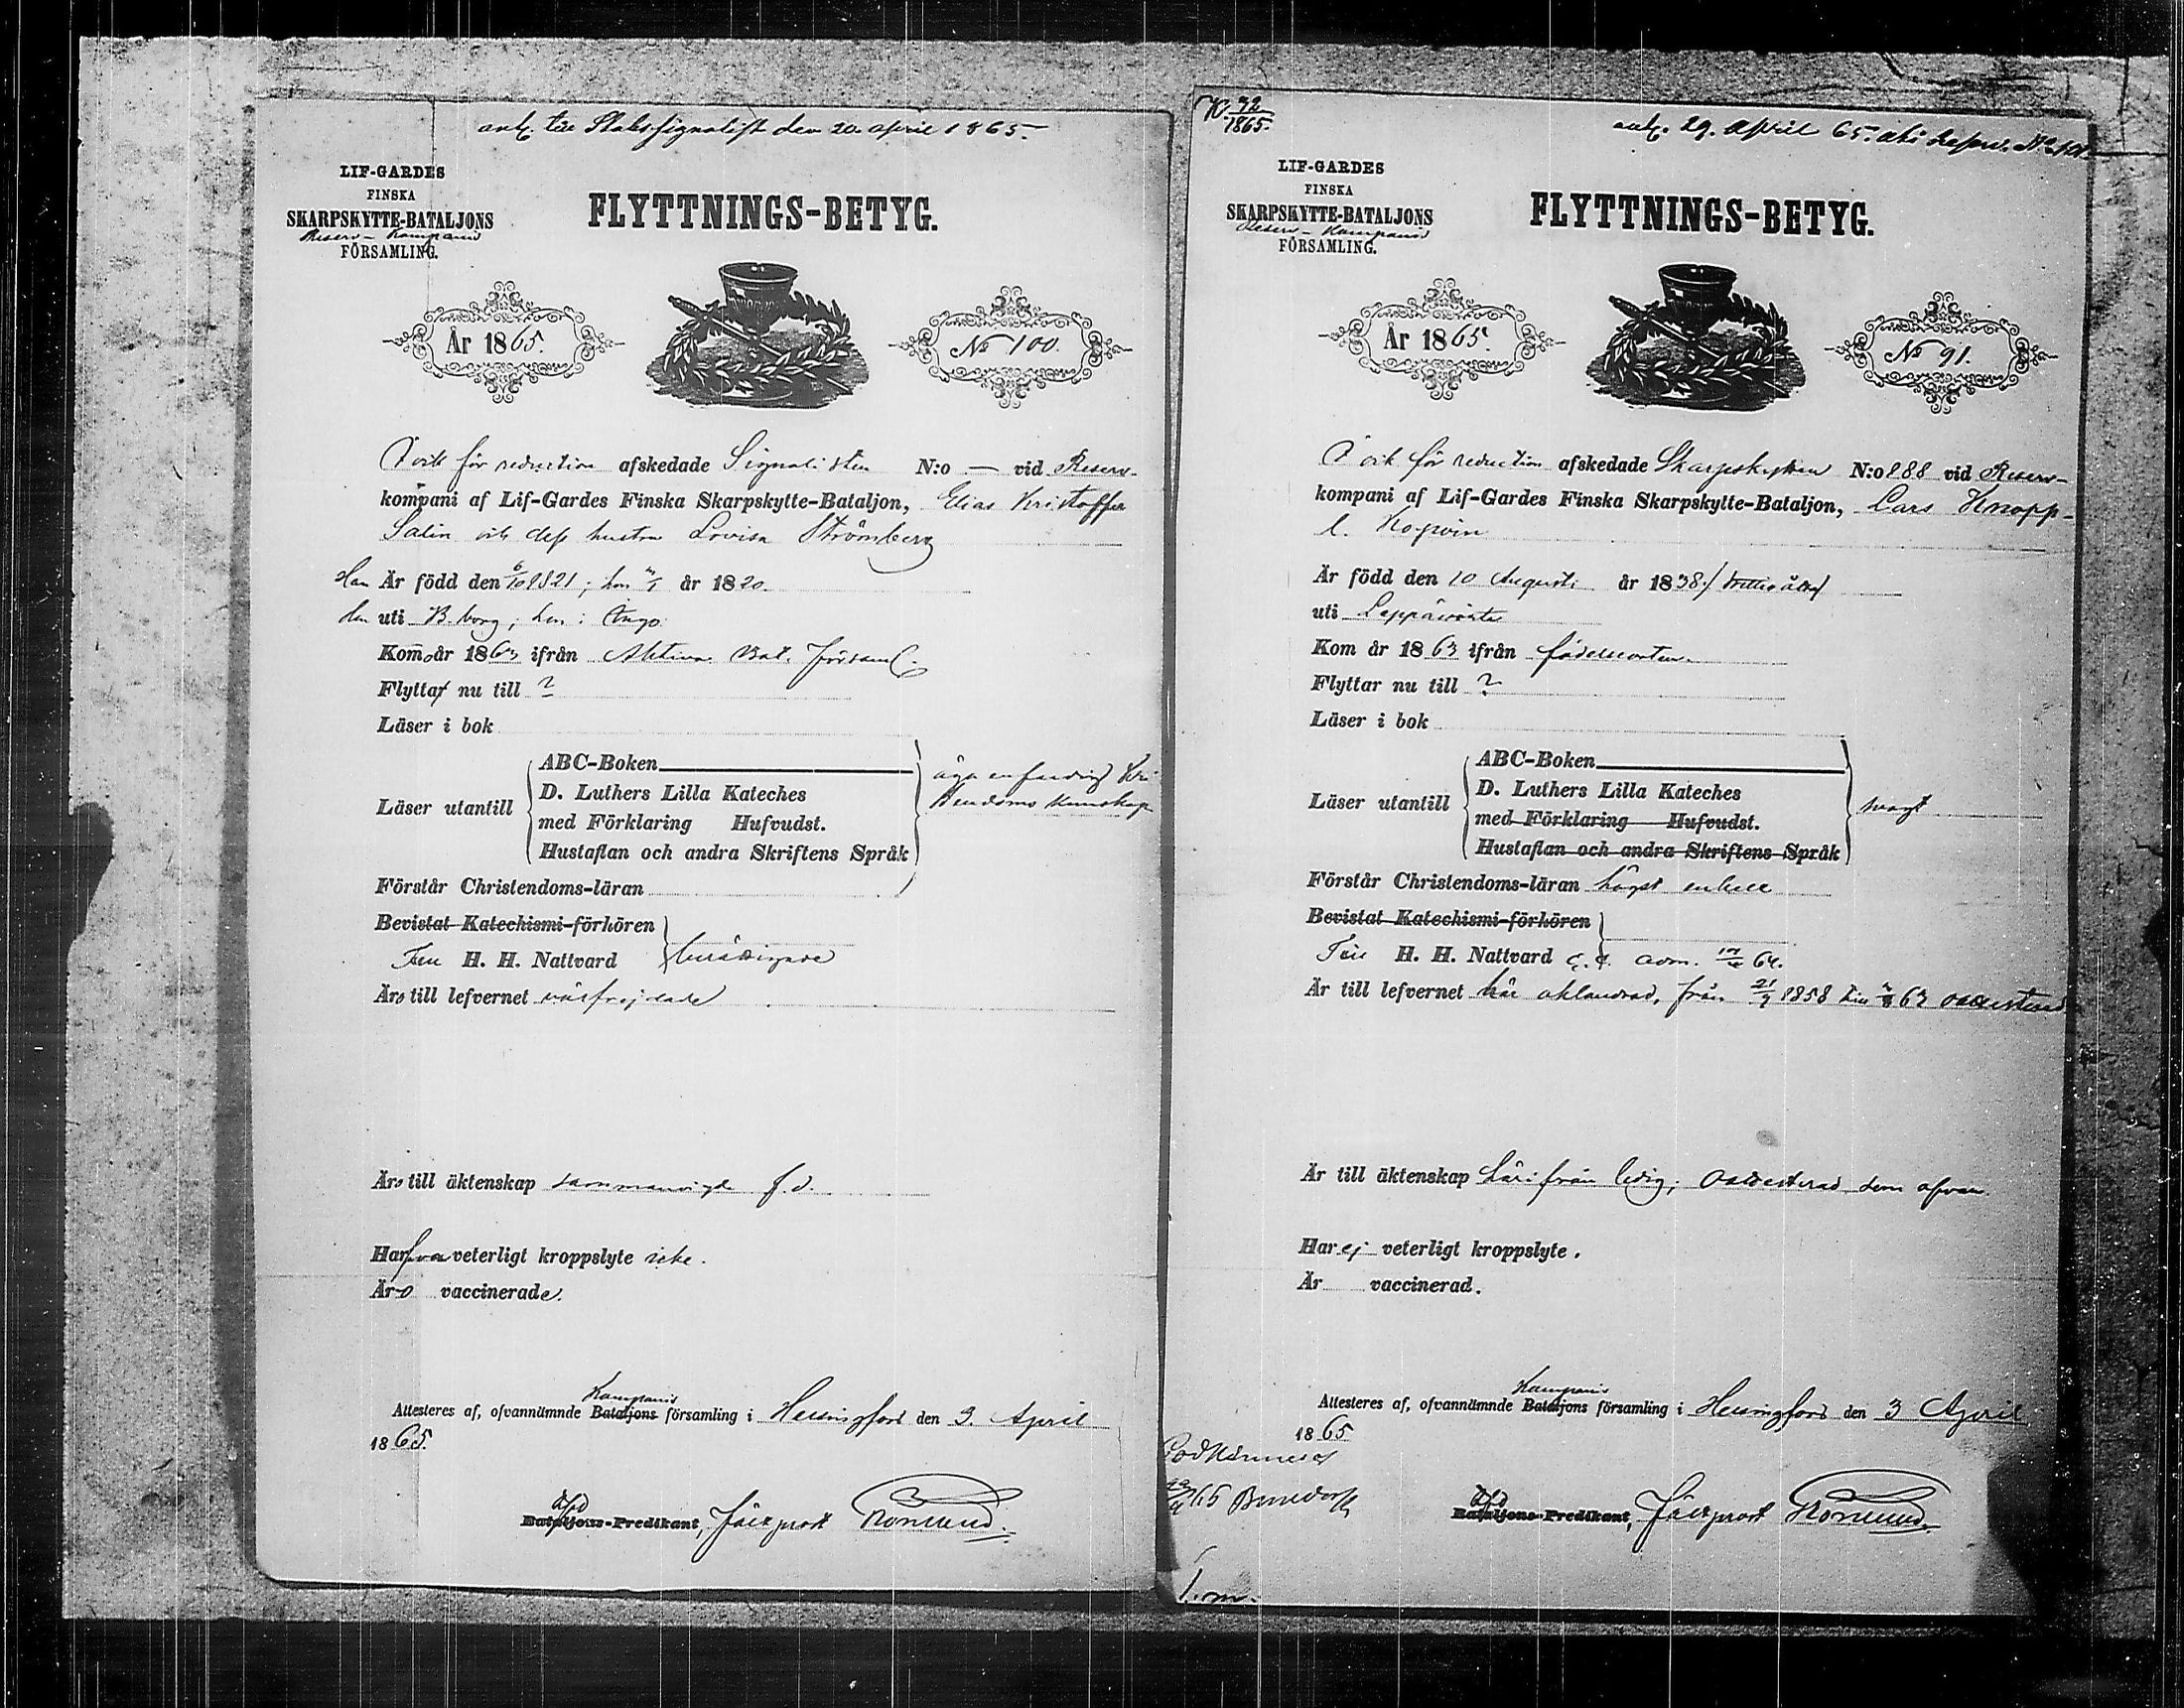 ank. till Stabssignalist den 20. april 1865.
LIF-GARDES
FINSKA
SKARPSKYTTE-BATALJONS
Reserv-Kompanis
FÖRSAMLING.
FLYTTNINGS-BETYG.
År 1865.
No 100.
för reduction afskedade Signalisten N:o — vid Reserv-
kompani af Lif-Gardes Finska Skarpskytte-Bataljon, Elias Kristoffer
Salin och dess hustru Lovisa Strömberg
Han Är född den 6/10 1821; hon år 1820.
Han uti B.borg; hon i Ingo
Komo år 1863 ifrån Aktiva Bat. Församl.
Flytta nu till ?
Läser i bok
Läser utantill
ABC-Boken
D. Luthers Lilla Kateches
med Förklaring Hufvudst.
Hustaflan och andra Skriftens Språk
äga en Kri-
stendoms kunskap
Förstår Christendoms-läran
Bevistat Katechismi-förhören
Till H. H. Nattvard berättigade
Äro till lefvernet välfrejdade
Äro till äktenskap sammanvigde f.d.
Hafva veterligt kroppslyte icke.
Äro vaccinerade.
Attesteres af, ofvannämnde Bataljons Kompanis församling i Helsingfors den 3. April
1865.
Bataljons-Predikant, Fältprost
72/1865.
ank. 29. April 65.
LIF-GARDES
FINSKA
SKARPSKYTTE-BATALJONS
Reserv-Kompanis
FÖRSAMLING.
FLYTTNINGS-BETYG.
År 1865.
No 91.
för reduction afskedade Skarpskytten N:o 188 vid Reserv-
kompani af Lif-Gardes Finska Skarpskytte-Bataljon, Lars Knopp
l. Kopoin
Är född den 10 Augusti år 1838
uti Leppävirta
Kom år 1863 ifrån födelseorten.
Flyttar nu till ?
Läser i bok
Läser utantill
ABC-Boken
D. Luthers Lilla Kateches
med Förklaring Hufvudst.
Hustaflan och andra Skriftens Språk
svagt
Förstår Christendoms-läran högst enkelt
Bevistat Katechismi-förhören
Till H. H. Nattvard adm. 64.
Är till lefvernet här oklandrad, från 21/9 1858 till 63 oattesterad
Är till äktenskap härifrån ledig; oattesterad som ofvan.
Har ej veterligt kroppslyte.
Är vaccinerad.
Attesteres af, ofvannämnde Bataljons Kompanis församling i Helsingfors den 3 April
1865
Godkännes
Bataljons-Predikant, Fältprost